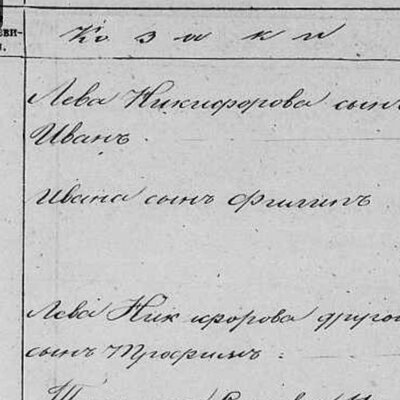 Козаки
Лева Никифорова сынъ
Иванъ.
Ивана сынъ Филипъ
Лева Никифорова другой
сынъ Трофимъ.